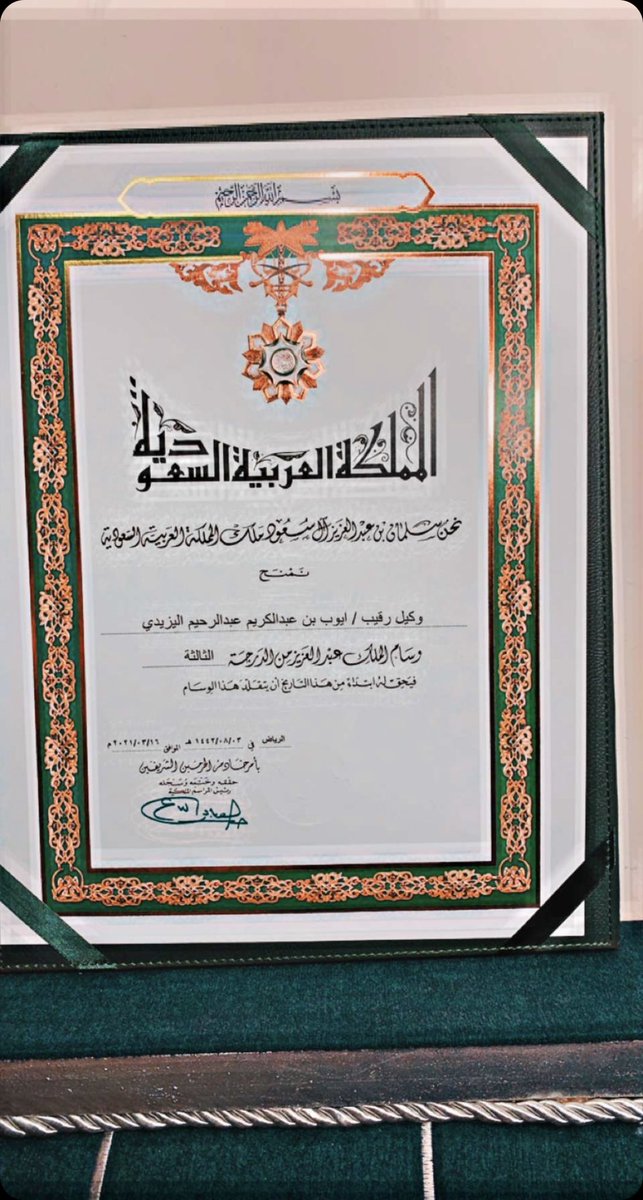 بسم الله الرحمن الرحيم
المملكة العربية السعودية
نحن سلمان بن عبد العزيز آل سعود ملك المملكة العربية السعودية
نمنح
وكيل رقيب / ايوب بن عبدالكريم عبدالرحيم اليزيدي
وسام الملك عبد العزيز من الدرجة الثالثة
فيحق له ابتداءً من هذا التاريخ أن يتقلد هذا الوسام
الرياض في ١٤٤٢/٠٨/٠٣ هـ الموافق ٢٠٢١/٠٣/١٦م
بأمر خادم الحرمين الشريفين
حققه وختمه وسجله
رئيس المراسم الملكية